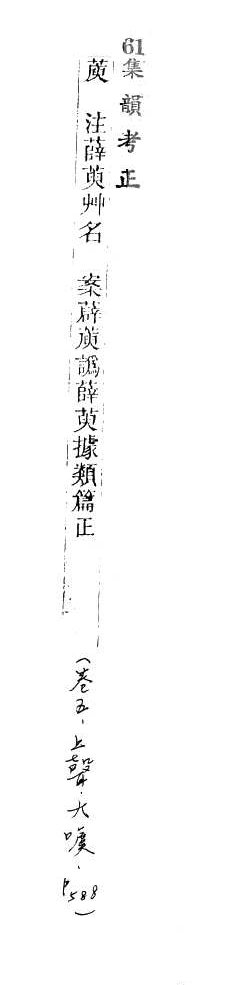 61集韻考正
注薛萸艸名 案薜庾譌薛萸據類篇正
(卷五．上聲．九噳．P588)